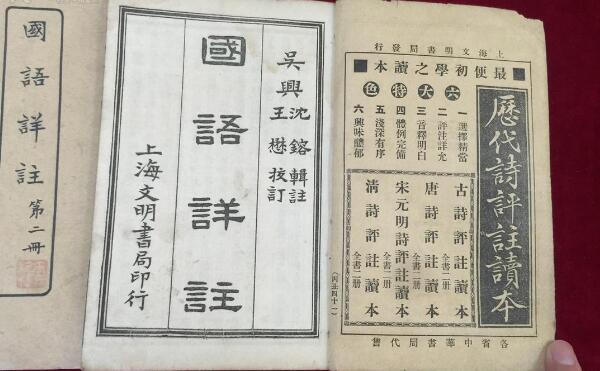 國語詳註 第二冊
吳興
沈鎔輯註
王懋校訂
國語詳註
上海文明書局印行
上海文明書局發行
歷代詩評註讀本
最便初學之讀本
六大特色
一 選擇精當
二 評注詳允
三 音釋明白
四 體例完備
五 淺深有序
六 興味醲郁
古詩評註讀本 全書二册
唐詩評註讀本 全書二册
宋元明詩評註讀本 全書二册
清詩評註讀本 全書二册
各省中華書局代售